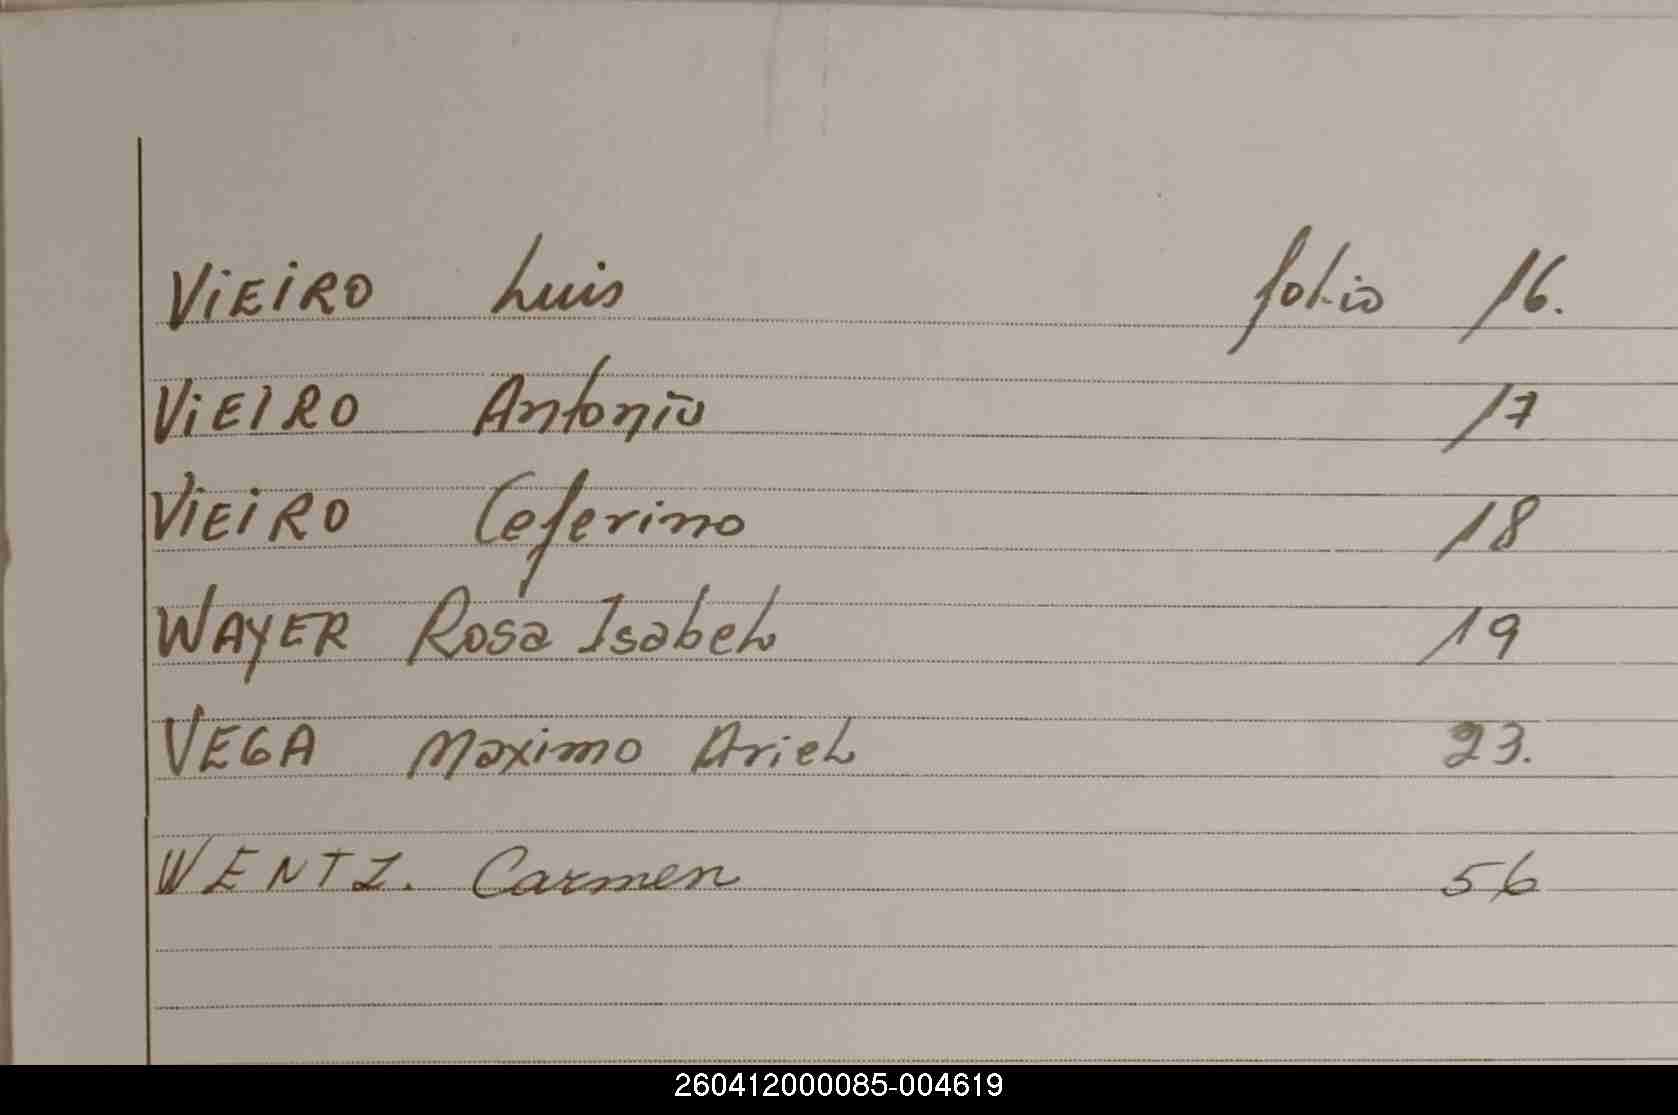 VIEIRO Luis folio 16.
VIEIRO Antonio 17
VIEIRO Ceferino 18
WAYER Rosa Isabel 19
VEGA Maximo Ariel 23.
WENTZ. Carmen 56
260412000085-004619